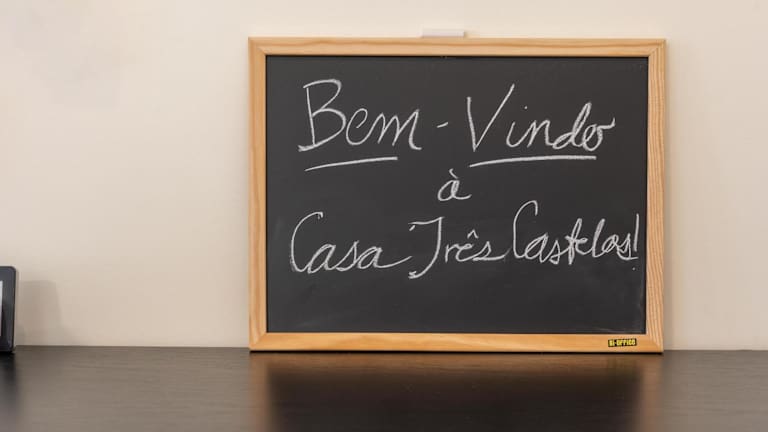 Bem-Vindo
à
Casa Três Castelos!
BI-OFFICE